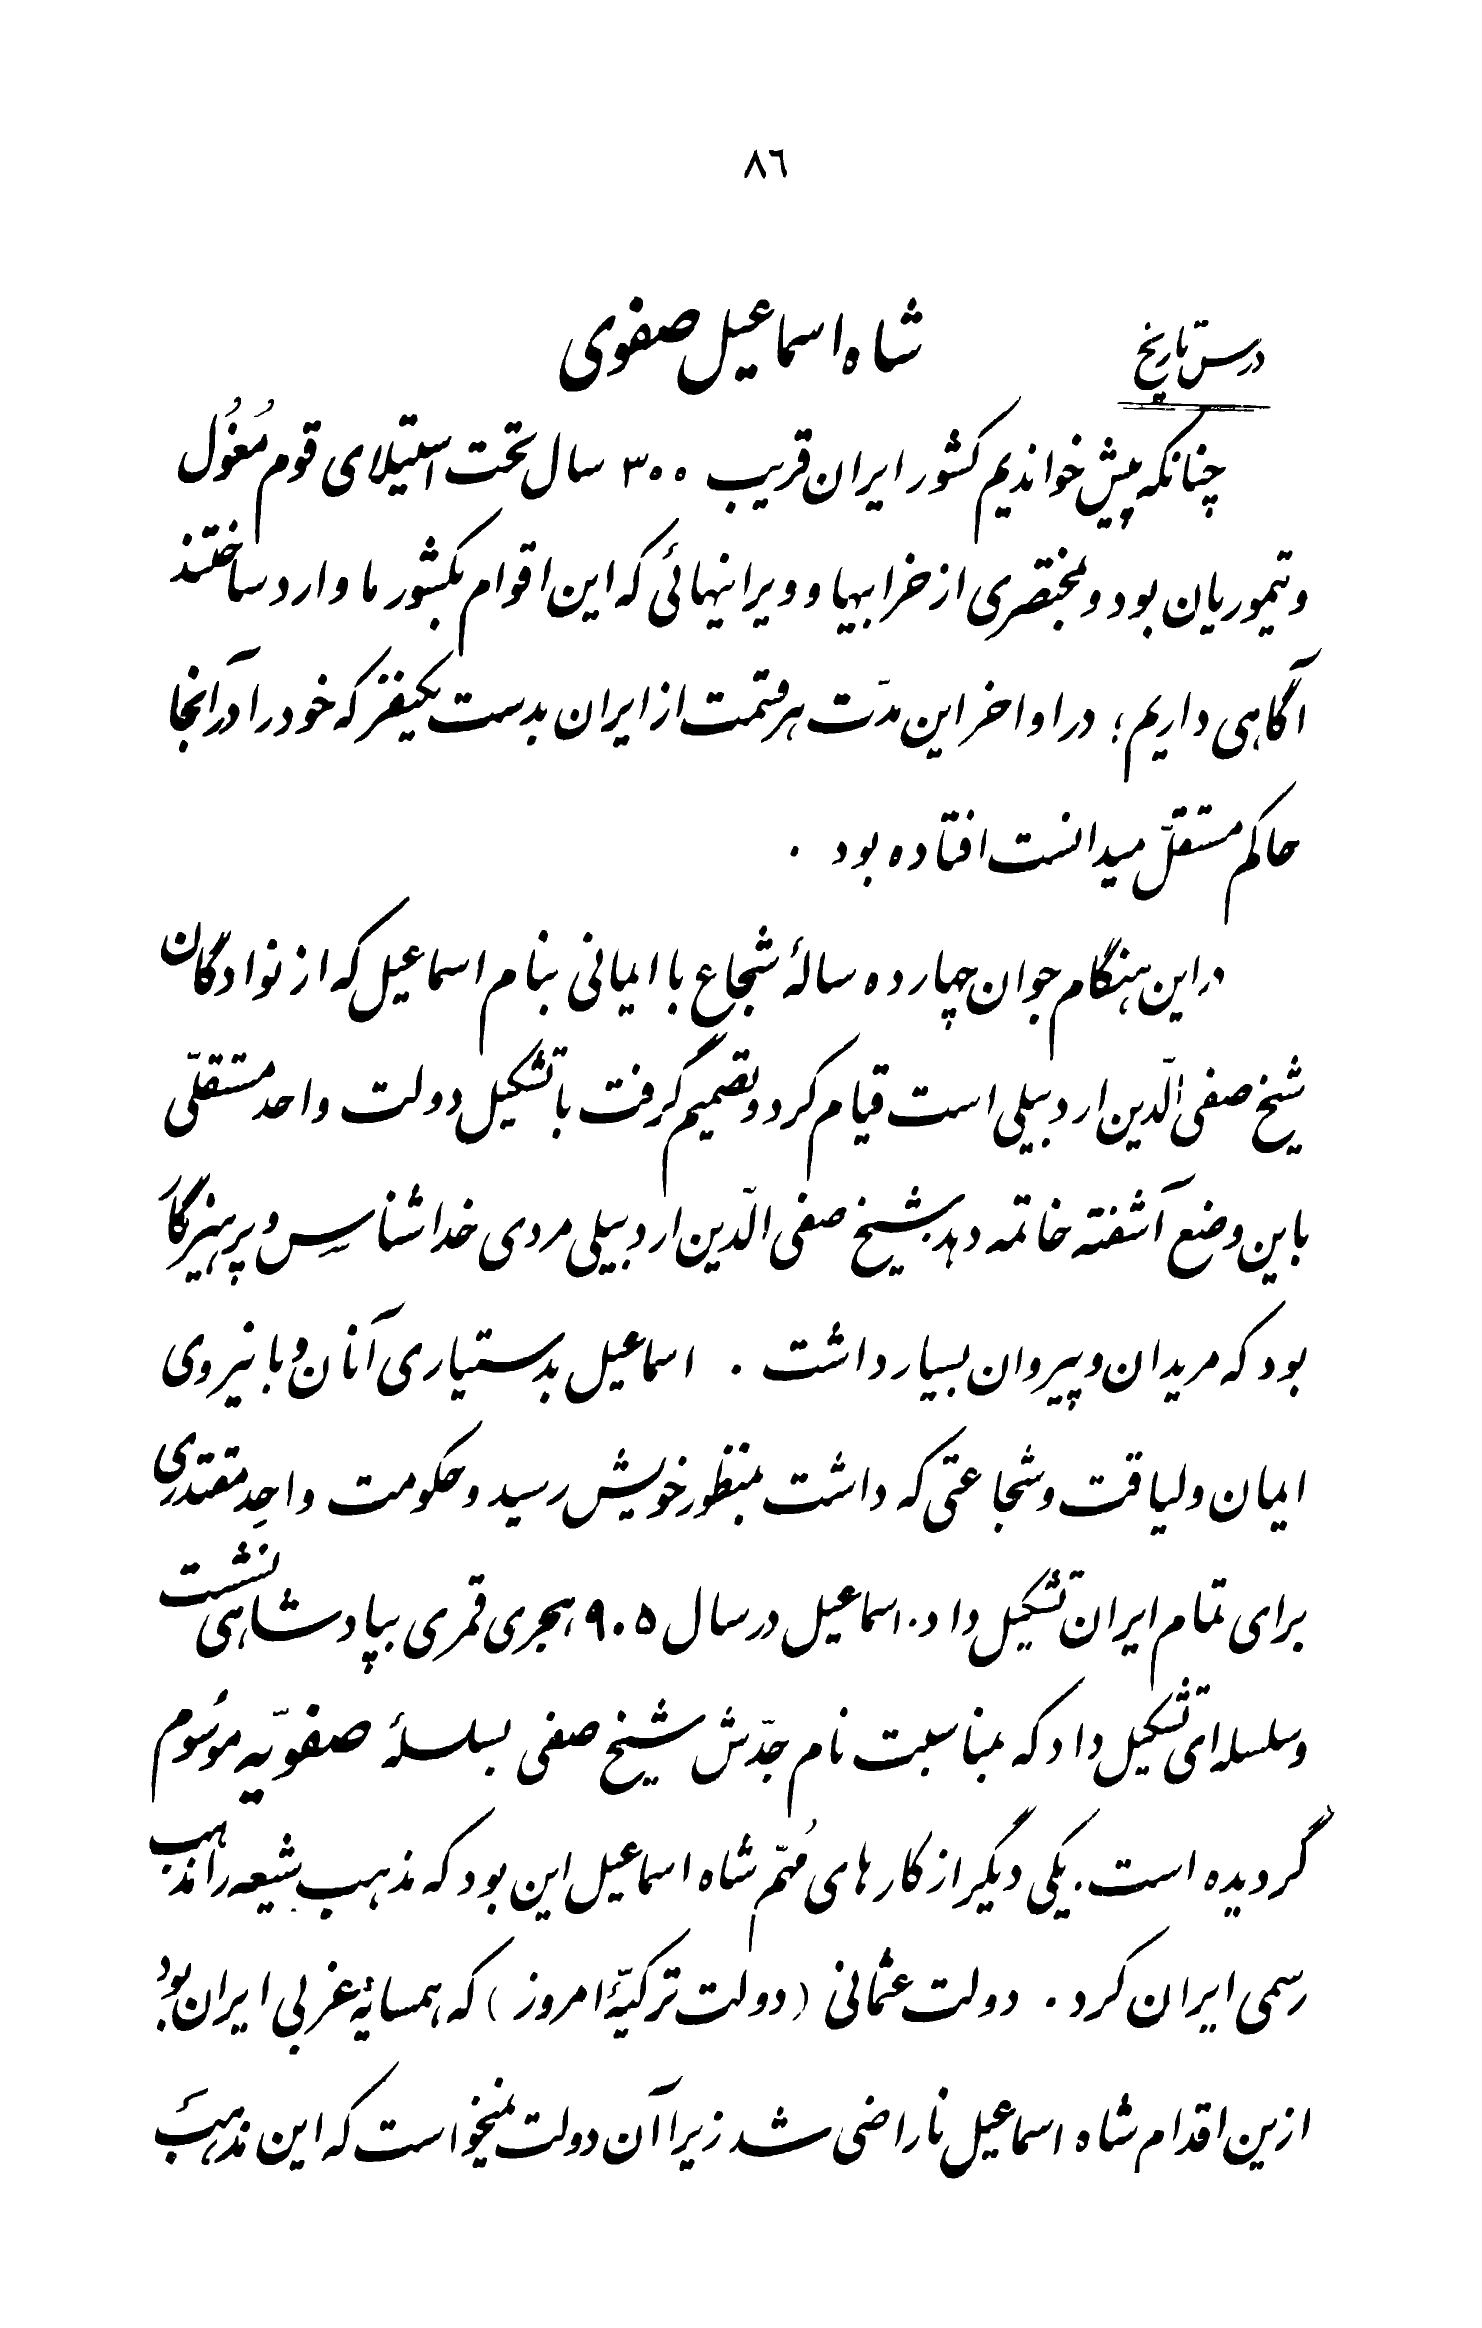 ٨٦
درس تاریخ
شاه اسماعیل صفوی
چنانکه پیش خواندیم کشور ایران قریب ۳۰۰ سال تحت استیلای قوم مُغُول
و تیموریان بود و مختصری از خرابیها و ویرانیهائی که این اقوام بکشور ما وارد ساختند
آگاهی داریم ؛ در اواخر این مدّت هر قسمت از ایران بدست یکنفر که خود را در آنجا
حاکم مستقلّ میدانست افتاده بود .
در این هنگام جوان چهارده سالهٔ شجاع با ایمانی بنام اسماعیل که از نوادگان
شیخ صفی الّدین اردبیلی است قیام کرد و تصمیم گرفت با تشکیل دولت واحد مستقلّی
باین وضع آشفته خاتمه دهد. شیخ صفی الّدین اردبیلی مردی خداشناس و پرهیزگار
بود که مریدان و پیروان بسیار داشت . اسماعیل بدستیاری آنان و با نیروی
ایمان و لیاقت و شجاعتی که داشت بمنظور خویش رسید و حکومت واحِد مقتدری
برای تمام ایران تشکیل داد. اسماعیل در سال ۹۰۵ هجری قمری بپادشاهی نشست
و سلسله ای تشکیل داد که بمناسبت نام جدّش شیخ صفی بسلسلهٔ صفویّه موسُوم
گردیده است. یکی دیگر از کارهای مُهمّ شاه اسماعیل این بود که مذهب شیعه را مذهب
رسمی ایران کرد . دولت عثمانی (دولت ترکیّهٔ امروز) که همسایهٔ غربی ایران بود
ازین اقدام شاه اسماعیل ناراضی شد زیرا آن دولت نمیخواست که این مذهب